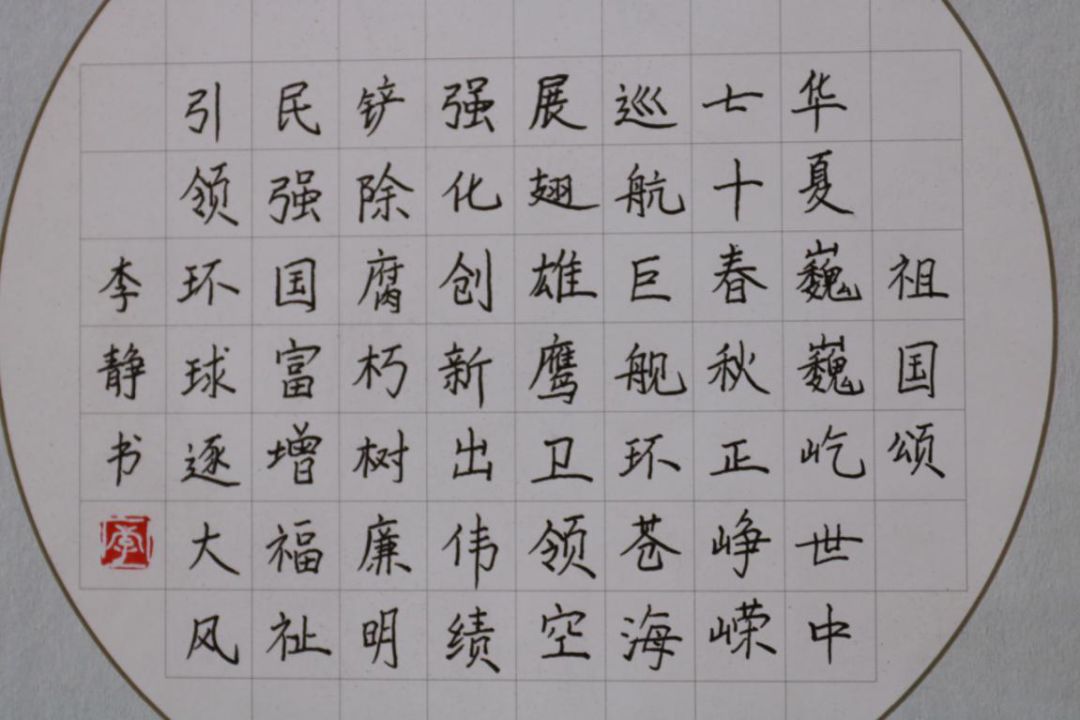 祖国颂
华夏巍巍屹世中
七十春秋正峥嵘
巡航巨舰环苍海
展翅雄鹰卫领空
强化创新出伟绩
铲除腐朽树廉明
民强国富增福祉
引领环球逐大风
李静书
李